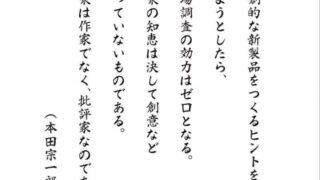 創的な新製品をつくるヒントを
ようとしたら、
場調査の効力はゼロとなる。
家の知恵は決して創意など
っていないものである。
家は作家でなく、批評家なのであ
（本田宗一郎